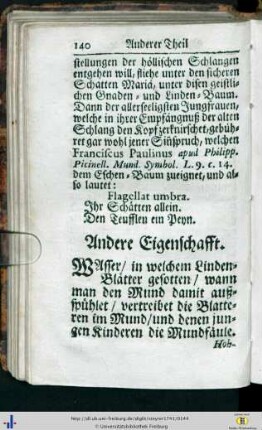 140 Anderer Theil
stellungen der höllischen Schlangen
entgehen will, fliehe unter den sicheren
Schatten Mariä, unter disen geistli-
chen Gnaden- und Linden-Baum.
Dann der allerseeligsten Jungfrauen,
welche in ihrer Empfängnuß der alten
Schlang den Kopf zerknirschet, gebüh-
ret gar wohl jener Sinspruch, welchen
Franciscus Paulinus apud Philipp.
Picinell. Mund. Symbol. L. 9. c. 14.
dem Eschen-Baum zueignet, und al-
so lautet:
Flagellat umbra.
Ihr Schatten allein.
Den Teufflen ein Peyn.
Andere Eigenschafft.
WAsser/ in welchem Linden-
Blätter gesotten/ wann
man den Mund damit auß-
spühlet/ vertreibet die Blatte-
ren im Mund/ und denen jun-
gen Kinderen die Mundfäule.
Höh-
© Universitätsbibliothek Freiburg